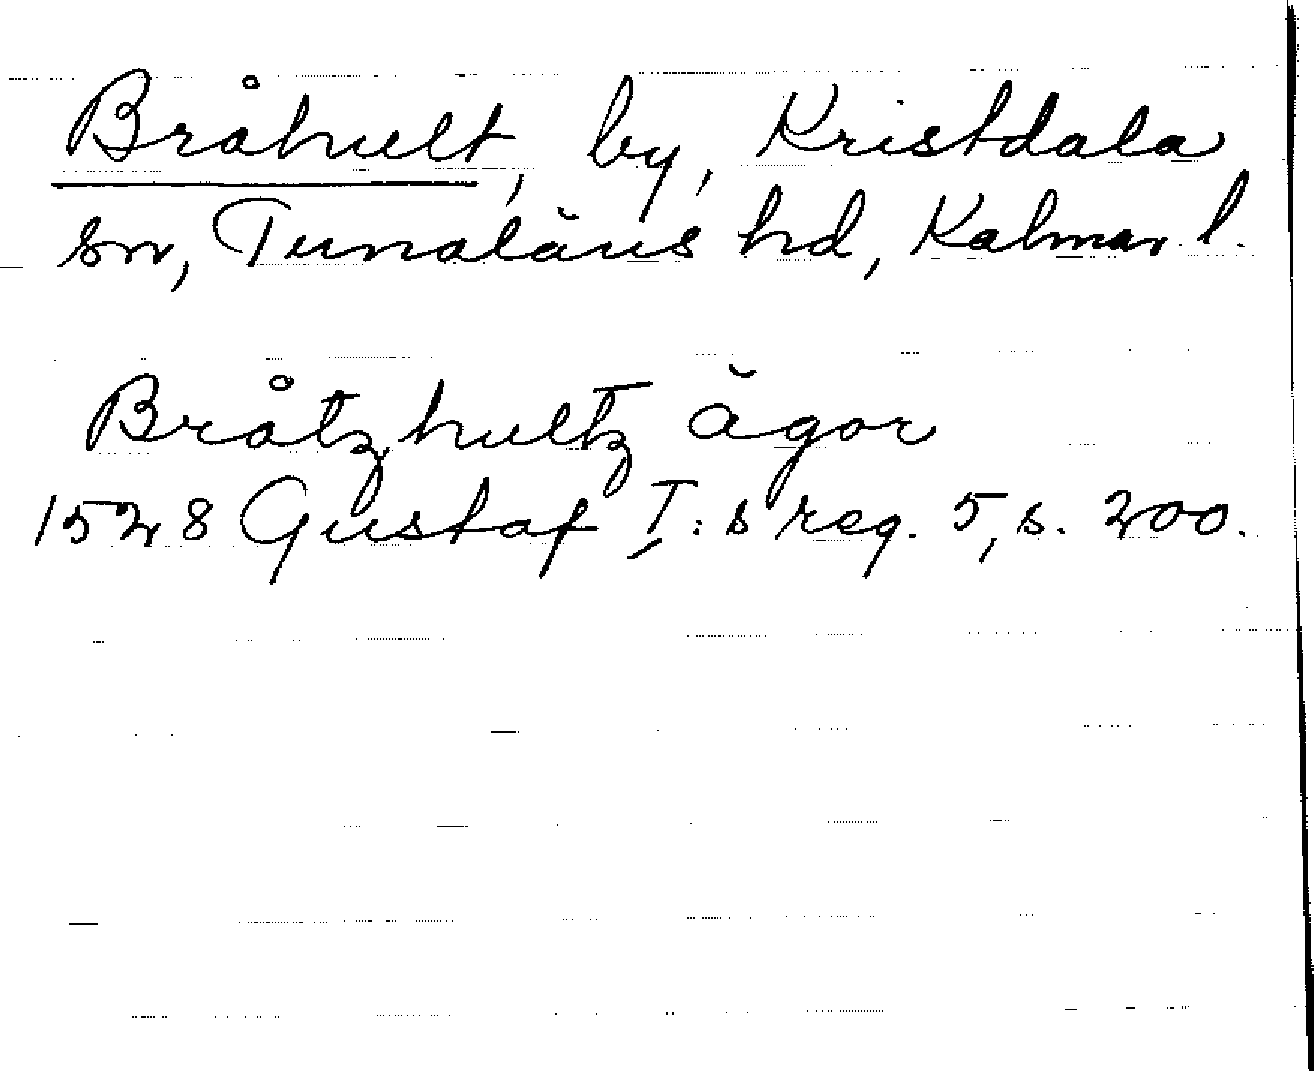 Bråhult, by, Kristdala
sn, Tunaläns hd, Kalmar l.
Bråtzhultz ägor
1528 Gustaf I:s reg. 5, s. 200.